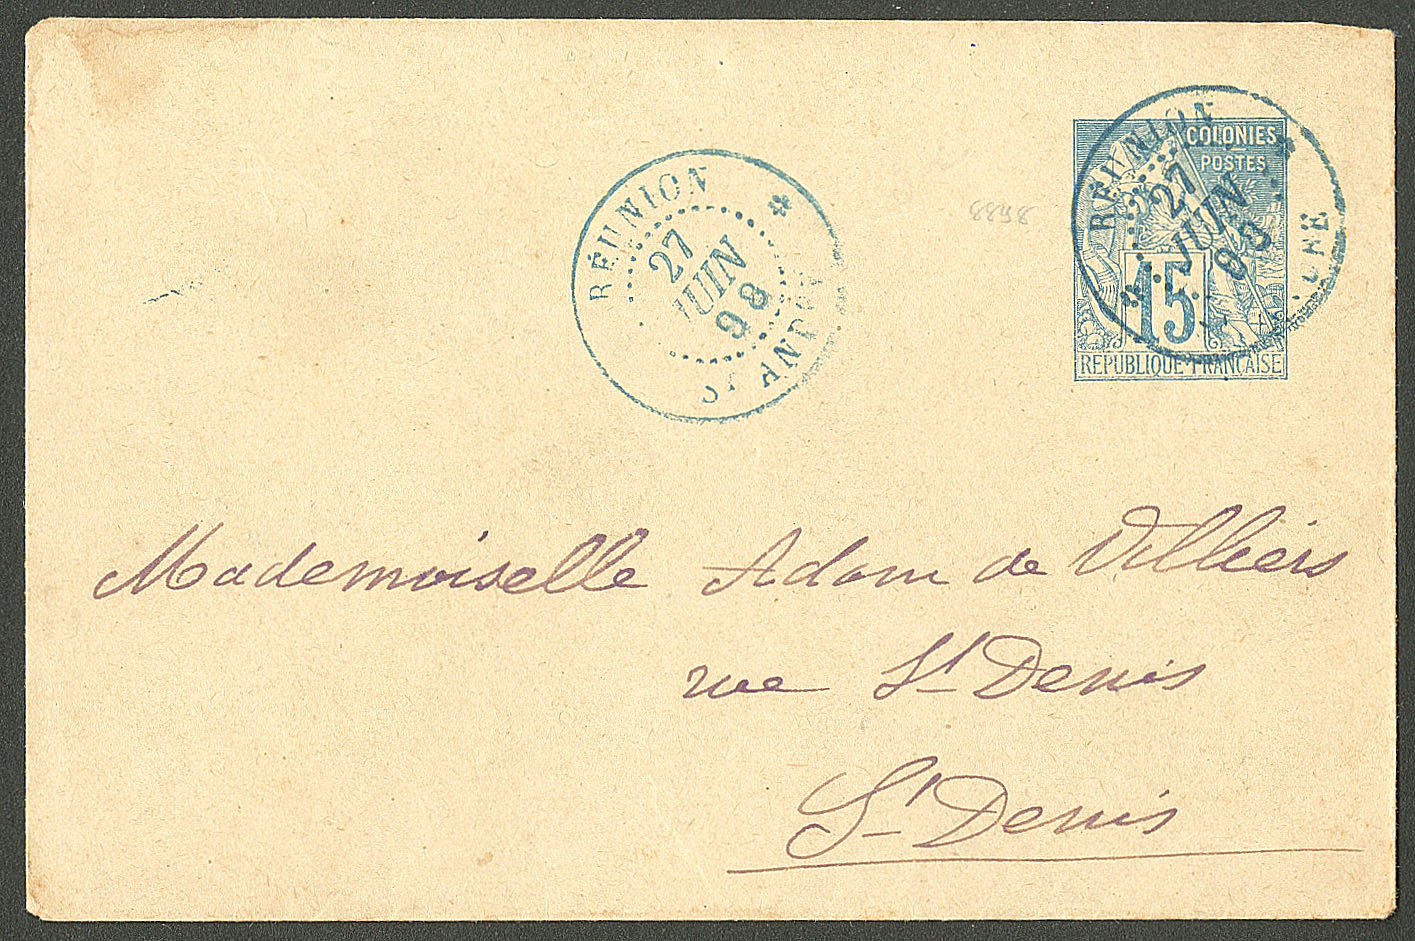 RÉUNION
27
JUIN
98
ST ANDRÉ
RÉUNION
27
JUIN
98
COLONIES
POSTES
15
REPUBLIQUE FRANÇAISE
Mademoiselle Adam de Villiers
rue St Denis
St Denis